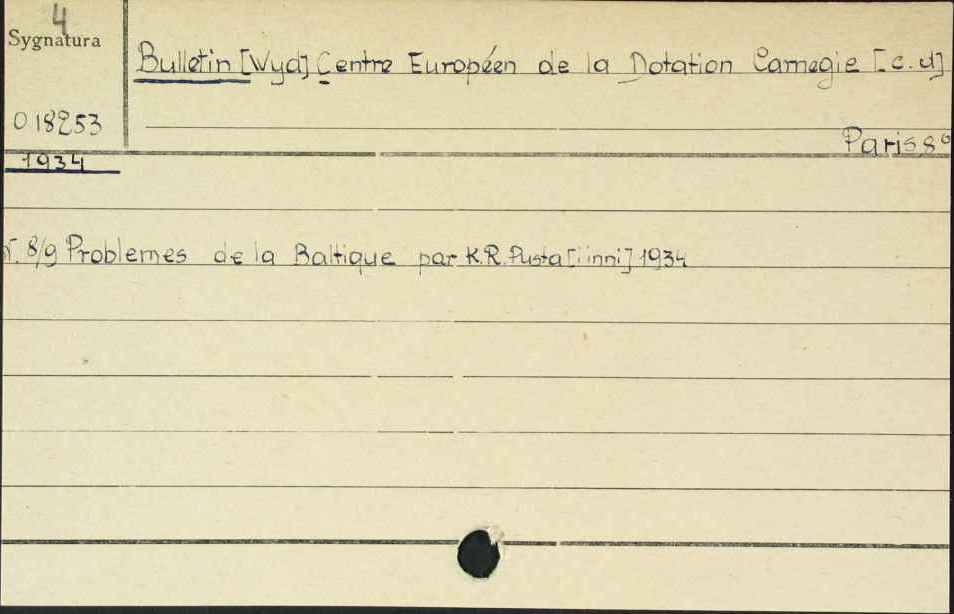 4
Sygnatura
Bulletin [Wyd] Centre Européen de la Dotation Carnegie [c.d]
018253
Paris, 8°
1934
N. 8/9 Problemes de la Baltique par K.R. Pusta [i inni] 1934